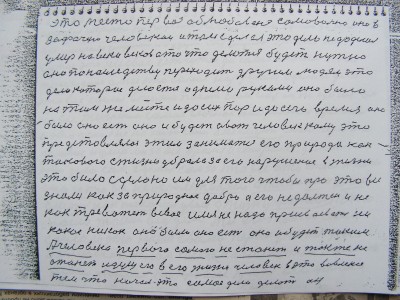 это место первое автобсвеия самовольно оно в
задачи человеком и там сделся это дель не доделал
умер на века веков а то что делотся будет нужно
оно по наследству переходит другим людям это
дело которое делося одними руками оно было
на том же месте и до сех пор и до сечь время оно
было оно ест оно и будет а вот человек кому это
представлялося этим занимаца его природа как
такового с жизни убрала за его нарушение в жизни
это было сделоно им для того чтобы про это вы
знали как за природное добро а его не далжен и не
как тревожет вевсе имя не надо присваеват ни
какое никак оно было оно ест оно и будет таким
А человека первого самого не станет и тожке не
станет идущего в его жизни человек в это вовлекся
тем что начел это самое дело делат он